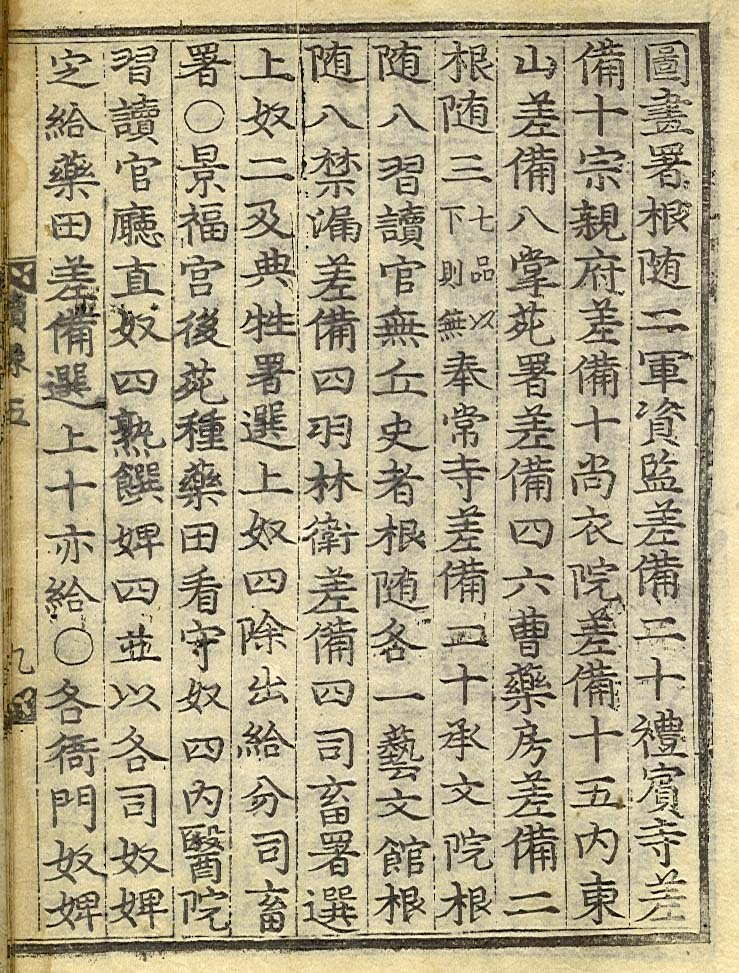 圖畫署根随二軍資監差備二十禮賓寺差
備十宗親府差備十尚衣院差備十五内東
山差備八掌苑署差備四六曹藥房差備二
根随三七品以下則無奉常寺差備二十承文院根
随八習讀官無丘史者根随各一藝文館根
随八禁漏差備四羽林衛差備四司畜署選
上奴二及典牲署選上奴四除出給分司畜
署○景福宮後苑種藥田看守奴四内醫院
習讀官廳直奴四熟饌婢四並以各司奴婢
定給藥田差備選上十亦給○各衙門奴婢
續錄五 九